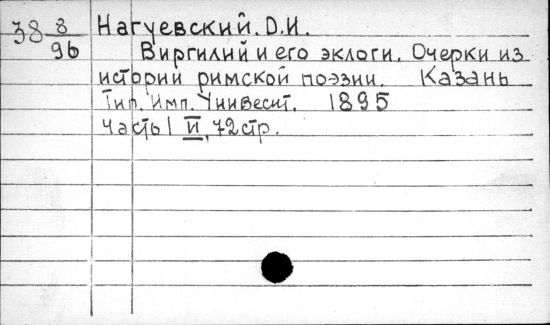 38 8/96 Нагуевский. D.И.
Виргилий и его эклоги. Очерки из
истории римской поэзии. Казань
Тип. Имп. Унивесит. 1895
часть I II, 72 стр.